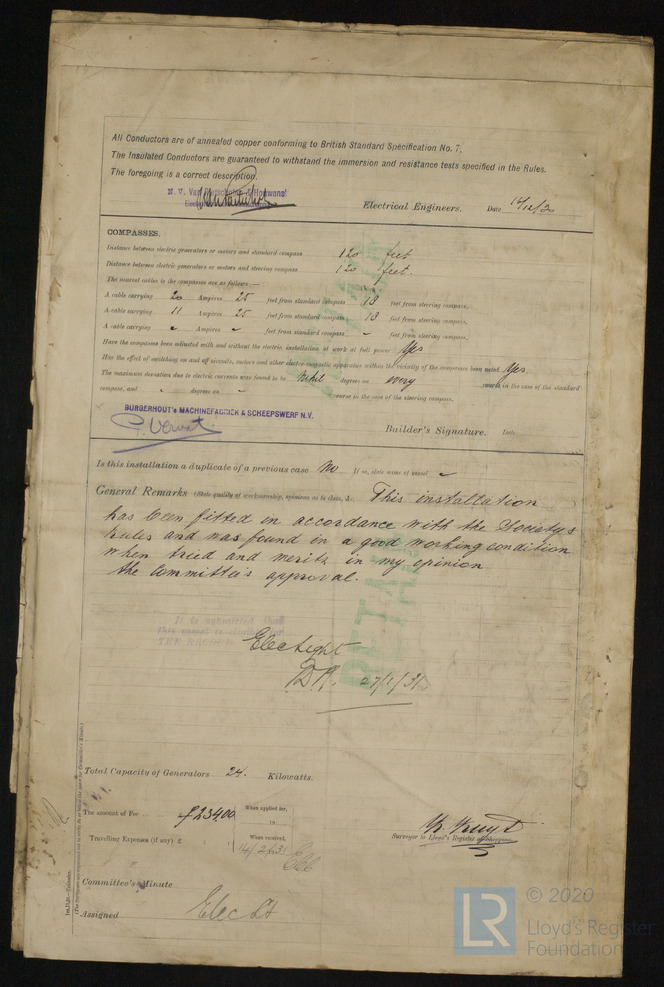 All Conductors are of annealed copper conforming to British Standard Specification No. 7,
The Insulated Conductors are guaranteed to withstand the immersion and resistance tests specified in the Rules.
The foregoing is a correct description,
N. V. Van
Electrical Engineers. Date
COMPASSES.
Distance between electric generators or motors and standard compass 120 feet
Distance between electric generators or motors and steering compass 120 feet.
The nearest cables to the compasses are as follows:—
A cable carrying 20 Ampères 25 feet from standard compass 18 feet from steering compass.
A cable carrying 11 Ampères 25 feet from standard compass 18 feet from steering compass.
A cable carrying - Ampères - feet from standard compass - feet from steering compass.
Have the compasses been adjusted with and without the electric installation at work at full power Yes
Has the effect of switching on and off circuits, motors and other electro-magnetic apparatus within the vicinity of the compasses been noted Yes
The maximum deviation due to electric currents was found to be Nihil degrees on every course in the case of the standard
compass, and - degrees on - course in the case of the steering compass.
BURGERHOUT's MACHINEFABRIEK & SCHEEPSWERF N.V.
Builder's Signature. Date
Is this installation a duplicate of a previous case No If so, state name of vessel -
General Remarks (State quality of workmanship, opinions as to class, &c. This installation
has been fitted in accordance with the Society's
rules and was found in a good working condition
when tried and merits in my opinion
the Committee's approval.
It is submitted that
this vessel is eligible for
THE RECORD
Elec Light
27/1/31
RETAIN
Total Capacity of Generators 24. Kilowatts.
The amount of Fee £234.00 When applied for,
19
Travelling Expenses (if any) £ When received,
Surveyor to Lloyd's Register of Shipping.
Committee's Minute
Assigned Elec Lt
LR
© 2020
Lloyd's Register
Foundation